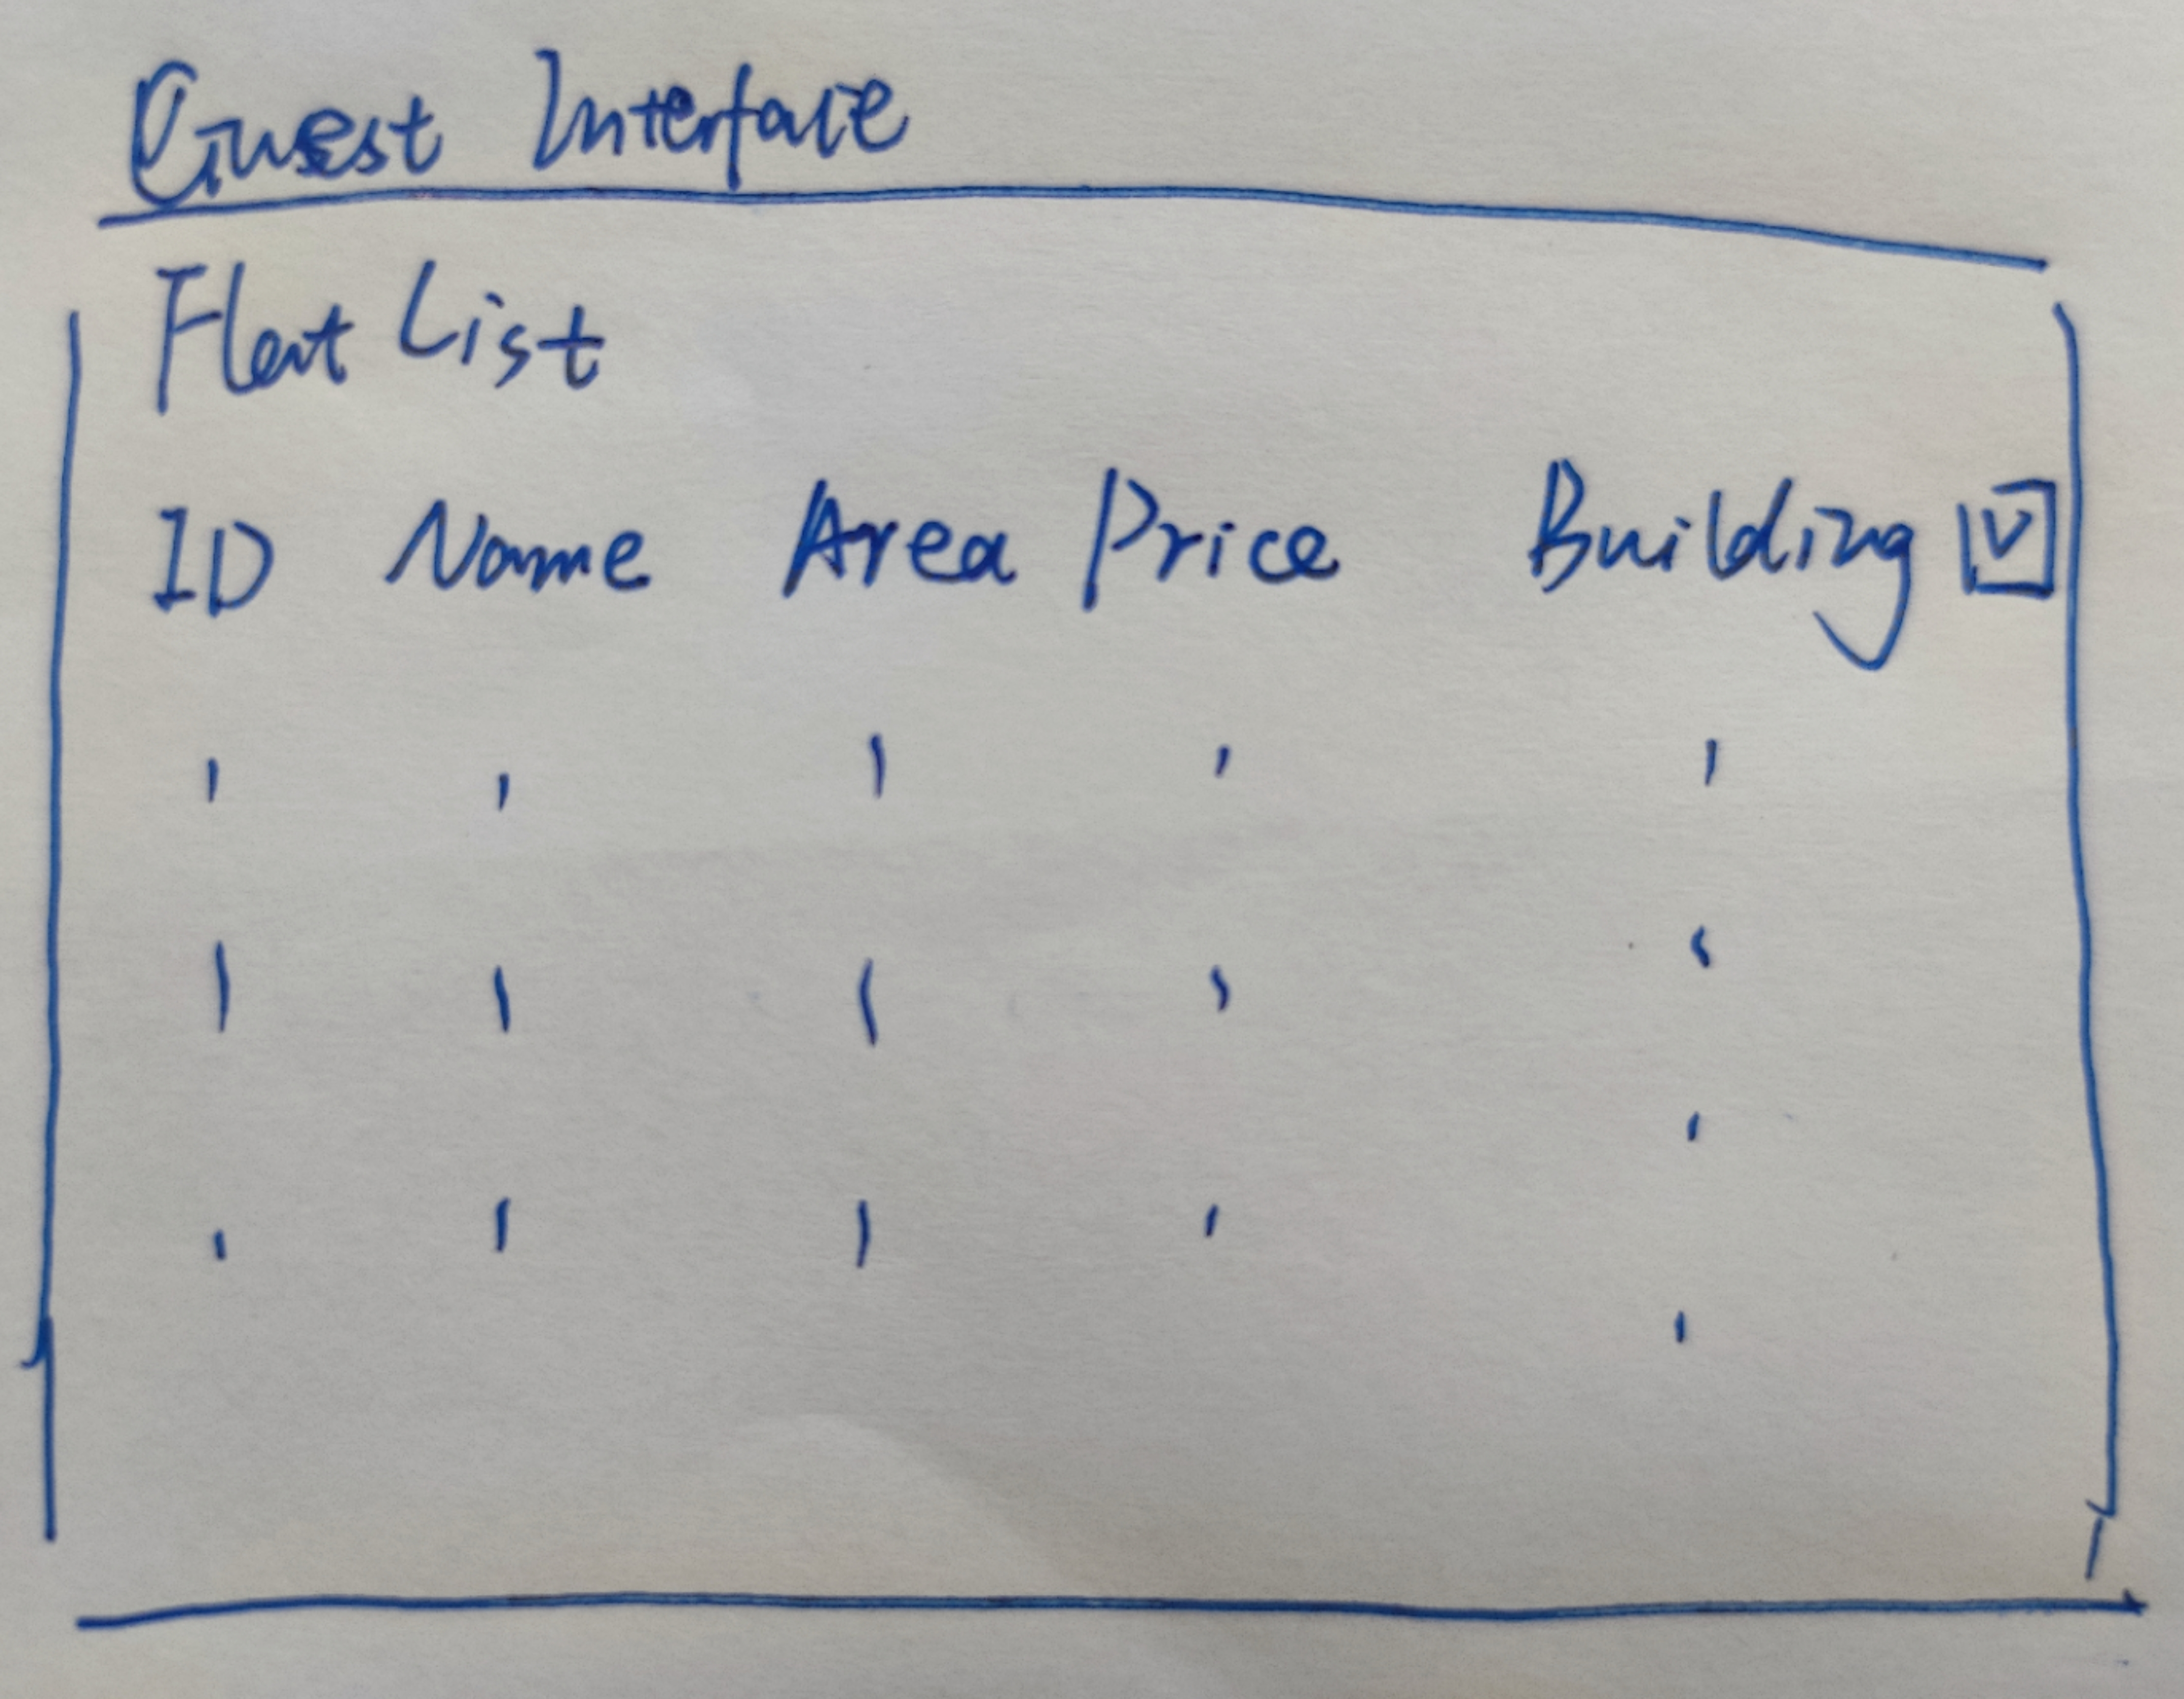 Guest Interface
Flat List
ID Name Area Price Building